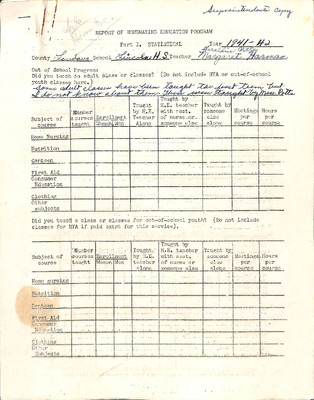 Superintendent's Copy
REPORT OF HOMEMAKING EDUCATION PROGRAM
Part I. STATISTICAL Year 1941-42
County Loudoun School Lincoln H.S. Teacher Margaret
Out of School Program:
Did you teach an adult class or classes? (Do not include NYA or out-of-school
youth classes here.)
Some adult classes have been taught the past term but
I do not know about them. These were taught by Miss Potts
Subject of course | Number courses taught | Enrollment Women Men | Taught by H.E. Teacher Alone | Taught by H.E. teacher with asst. of nurse or someone else | Taught by someone else alone | Meetings per course | Hours per course
Home Nursing
Nutrition
Canteen
First Aid
Consumer
Education
Clothing
Other
subjects
Did you teach a class or classes for out-of-school youth? (Do not include
classes for NYA if paid extra for this service).
Subject of course | Number courses taught | Enrollment Women Men | Taught by H.E. teacher alone | Taught by H.E. teacher with asst. of nurse or someone else | Taught by someone else alone | Meetings per course | Hours per course
Home nursing
Nutrition
Canteen
First Aid
Consumer
Education
Clothing
Other
Subjects